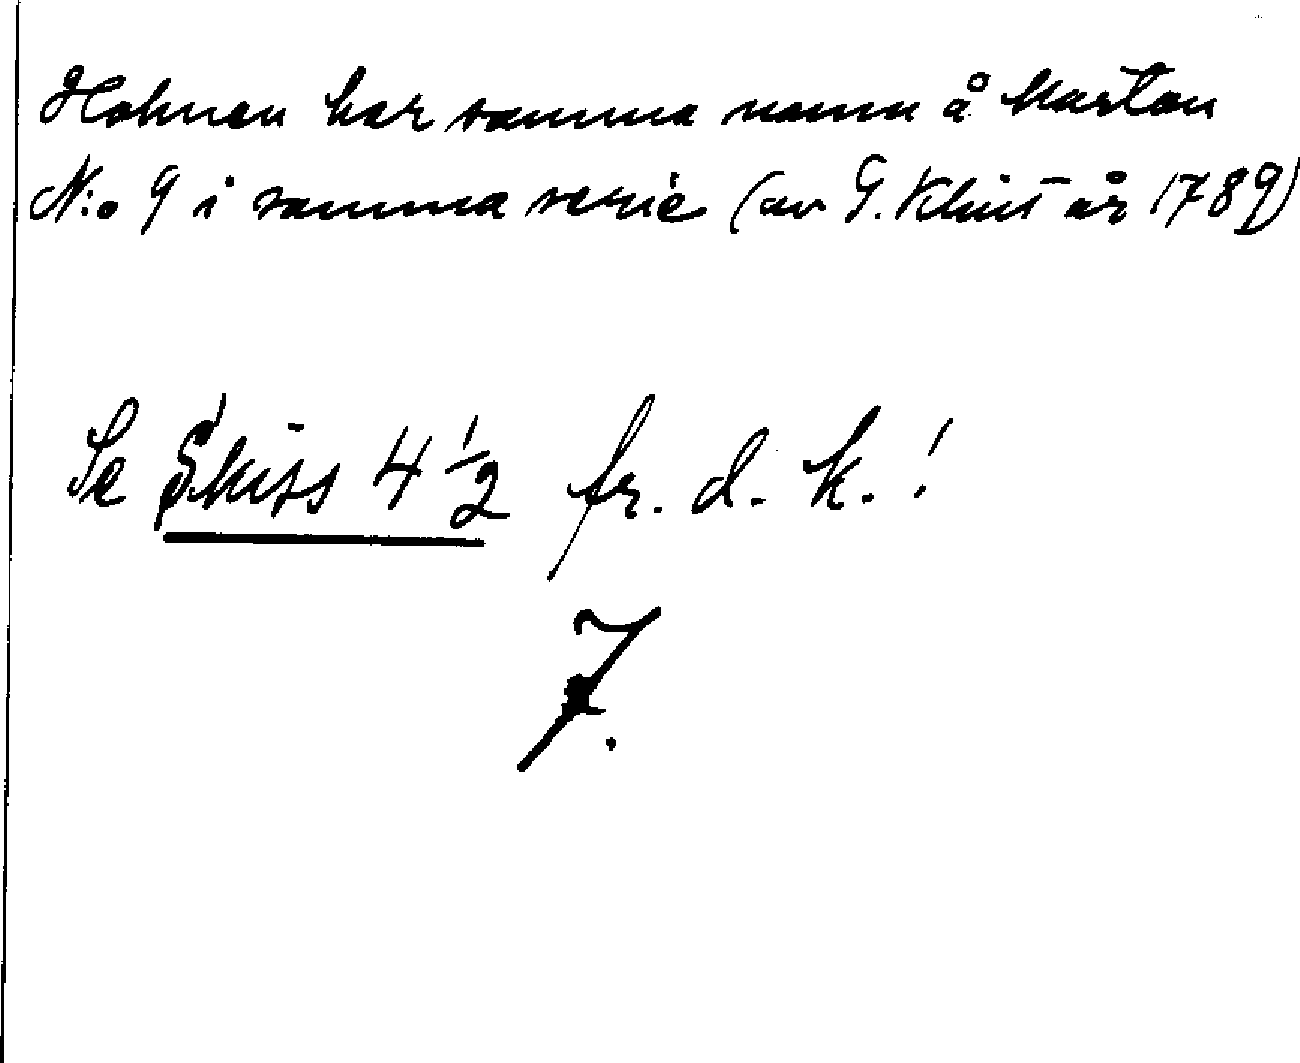 Holmen har samma namn å kartan
N:o 9 i samma serie (av G. Klint år 1789)
Se Skiss 4 1/2 fr. d. k.!
7.